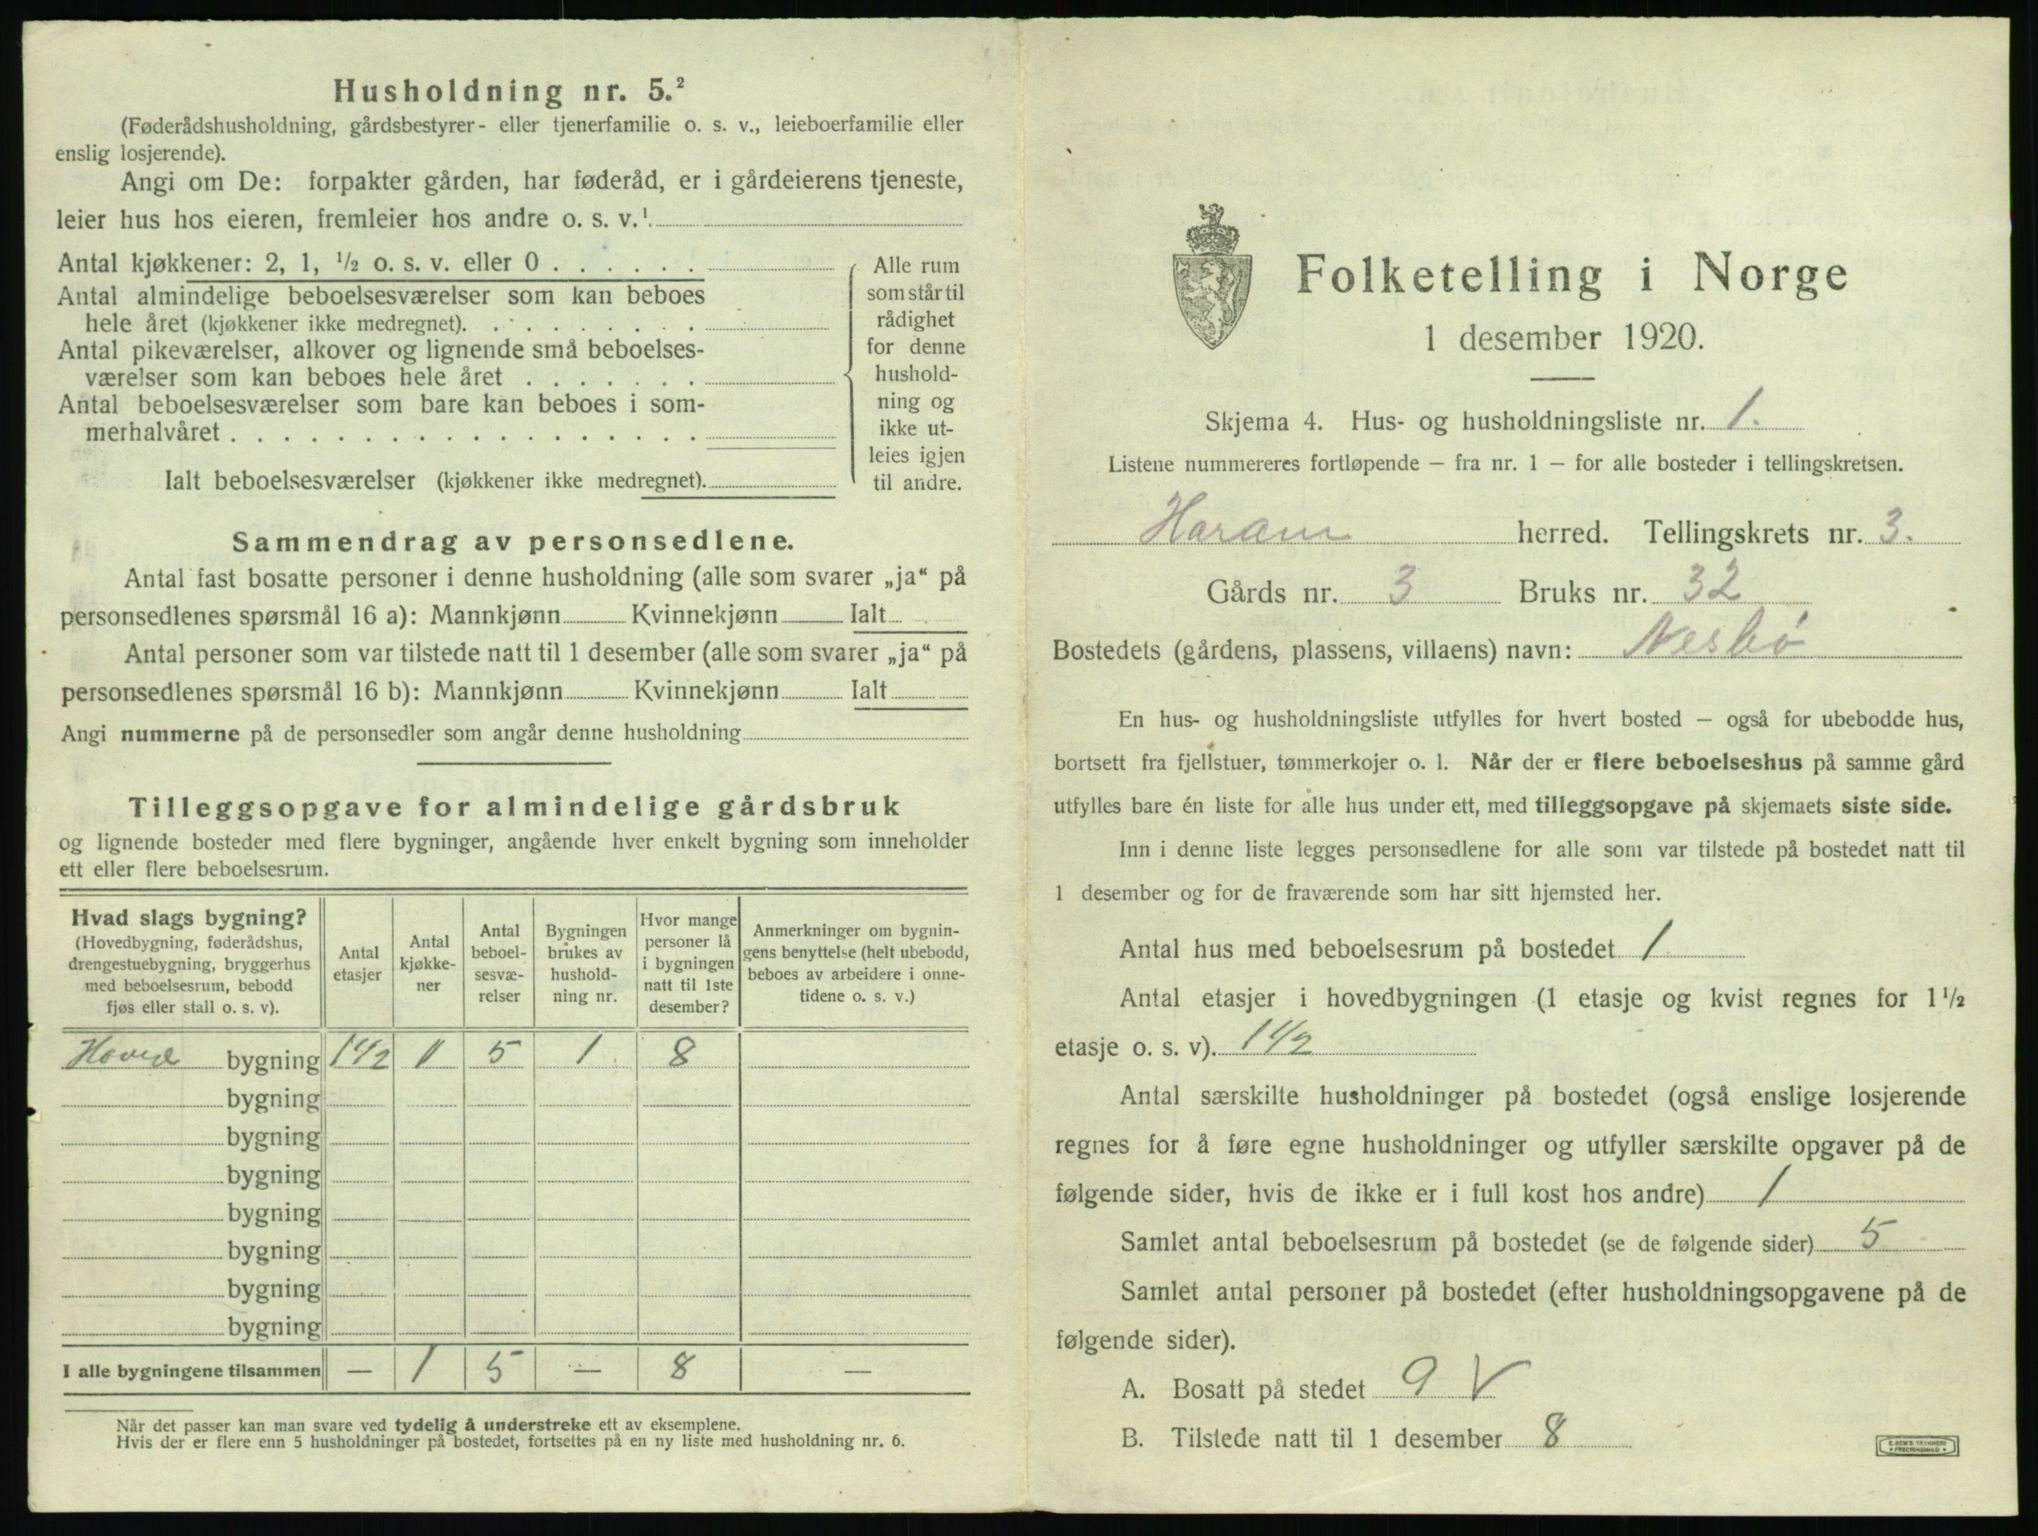 Husholdning nr. 5.²
(Føderådshusholdning, gårdsbestyrer- eller tjenerfamilie o. s. v., leieboerfamilie eller
enslig losjerende).
Angi om De: forpakter gården, har føderåd, er i gårdeierens tjeneste,
leier hus hos eieren, fremleier hos andre o. s. v.¹
Antal kjøkkener: 2, 1, ½ o. s. v. eller 0
Antal almindelige beboelsesværelser som kan beboes
hele året (kjøkkener ikke medregnet).
Antal pikeværelser, alkover og lignende små beboelses-
værelser som kan beboes hele året
Antal beboelsesværelser som bare kan beboes i som-
merhalvåret
Ialt beboelsesværelser (kjøkkener ikke medregnet).
Alle rum
som står til
rådighet
for denne
hushold-
ning og
ikke ut-
leies igjen
til andre.
Sammendrag av personsedlene.
Antal fast bosatte personer i denne husholdning (alle som svarer „ja“ på
personsedlenes spørsmål 16 a): Mannkjønn Kvinnekjønn Ialt
Antal personer som var tilstede natt til 1 desember (alle som svarer „ja“ på
personsedlenes spørsmål 16 b): Mannkjønn Kvinnekjønn Ialt
Angi nummerne på de personsedler som angår denne husholdning
Tilleggsopgave for almindelige gårdsbruk
og lignende bosteder med flere bygninger, angående hver enkelt bygning som inneholder
ett eller flere beboelsesrum.
Hvad slags bygning?
(Hovedbygning, føderådshus,
drengestuebygning, bryggerhus
med beboelsesrum, bebodd
fjøs eller stall o. s. v).
Antal
etasjer
Antal
kjøkke-
ner
Antal
beboel-
sesvæ-
relser
Bygningen
brukes av
hushold-
ning nr.
Hvor mange
personer lå
i bygningen
natt til 1ste
desember?
Anmerkninger om bygnin-
gens benyttelse (helt ubebodd,
beboes av arbeidere i onne-
tidene o. s. v.)
Hoved bygning 1½ 1 5 1 8
bygning
bygning
bygning
bygning
bygning
bygning
bygning
I alle bygningene tilsammen — 1 5 — 8 —
Når det passer kan man svare ved tydelig å understreke ett av eksemplene.
Hvis der er flere enn 5 husholdninger på bostedet, fortsettes på en ny liste med husholdning nr. 6.
Folketelling i Norge
1 desember 1920.
Skjema 4. Hus- og husholdningsliste nr. 1.
Listene nummereres fortløpende – fra nr. 1 – for alle bosteder i tellingskretsen.
Haram herred. Tellingskrets nr. 3.
Gårds nr. 3 Bruks nr. 32
Bostedets (gårdens, plassens, villaens) navn: Nesbö
En hus- og husholdningsliste utfylles for hvert bosted – også for ubebodde hus,
bortsett fra fjellstuer, tømmerkojer o. l. Når der er flere beboelseshus på samme gård
utfylles bare én liste for alle hus under ett, med tilleggsopgave på skjemaets siste side.
Inn i denne liste legges personsedlene for alle som var tilstede på bostedet natt til
1 desember og for de fraværende som har sitt hjemsted her.
Antal hus med beboelsesrum på bostedet 1
Antal etasjer i hovedbygningen (1 etasje og kvist regnes for 1½
etasje o. s. v). 1½
Antal særskilte husholdninger på bostedet (også enslige losjerende
regnes for å føre egne husholdninger og utfyller særskilte opgaver på de
følgende sider, hvis de ikke er i full kost hos andre) 1
Samlet antal beboelsesrum på bostedet (se de følgende sider) 5
Samlet antal personer på bostedet (efter husholdningsopgavene på de
følgende sider).
A. Bosatt på stedet 9 V
B. Tilstede natt til 1 desember 8